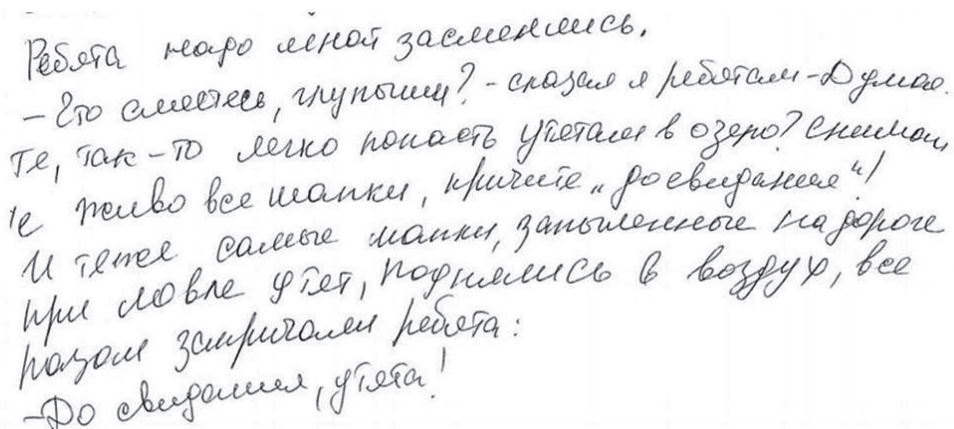 Ребята надо мной засмеялись.
– Что смеетесь, глупыши? – сказал я ребятам – Думае.
те, так-то легко попасть утятам в озеро? Снимай
те живо все шапки, кричите „досвидания“!
И теже самые шапки, запыленные на дороге
при ловле утят, поднялись в воздух, все
разом закричали ребята:
– До свидания, утята!